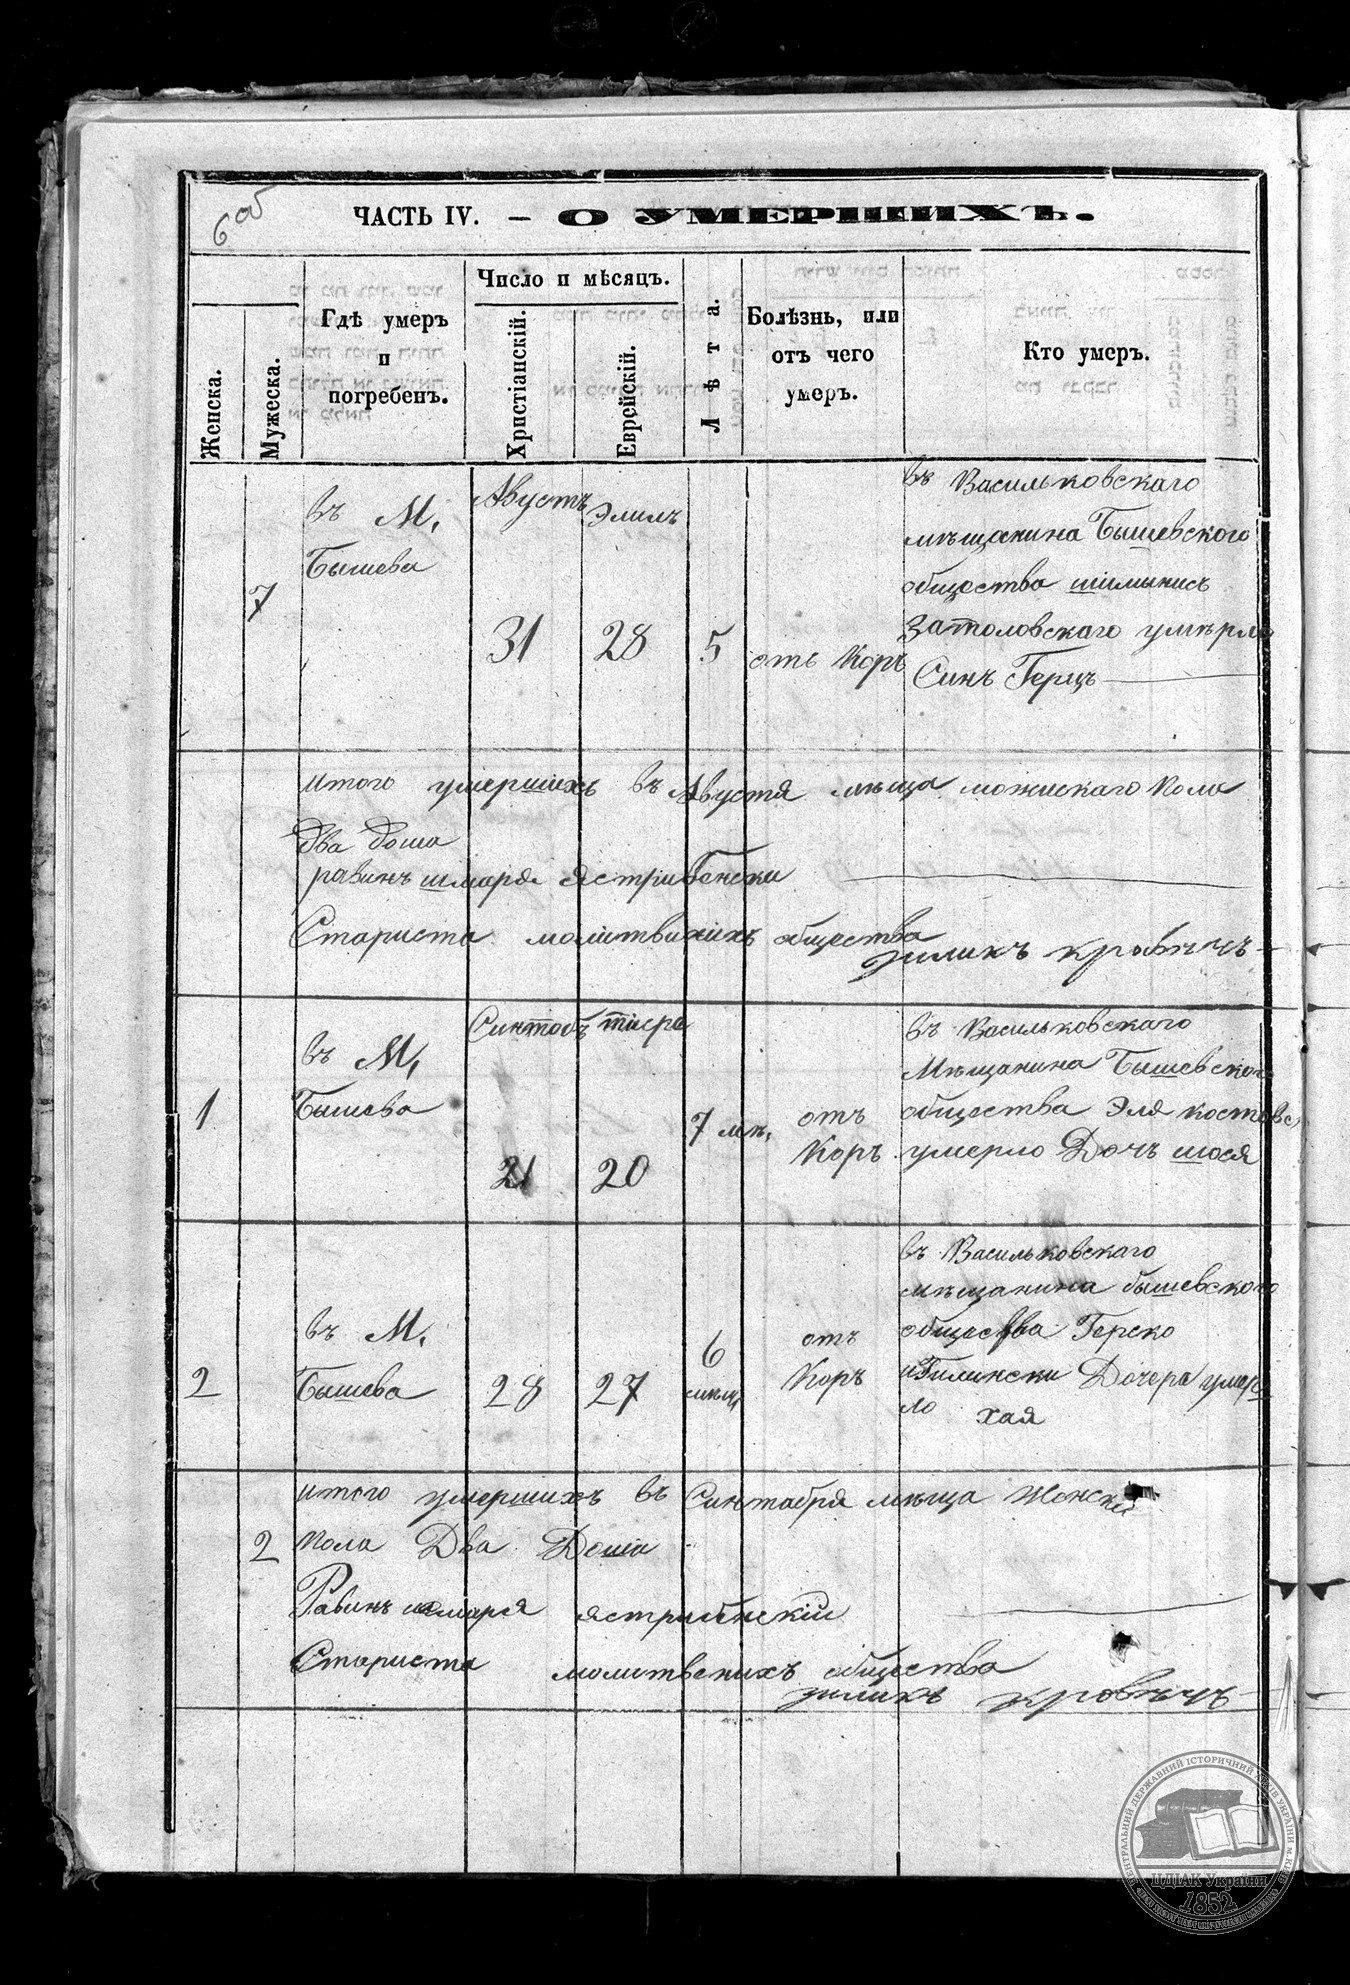 6 об
ЧАСТЬ IV. — О УМЕРШИХЪ.
Женска.
Мужеска.
Гдѣ умеръ
и
погребенъ.
Число и мѣсяцъ.
Христіанскій.
Еврейскій.
Лѣта.
Болѣзнь, или
отъ чего
умеръ.
Кто умеръ.
7
въ М,
Бышева
Августъ
31
Элилъ
28
5
отъ Коръ
въ Васильковскаго
мѣщанина Бышевского
общества шимынисъ
Затоловскаго умѣрло
Синъ Герцъ
итого умершихъ въ Августя мѣща можискаго Пола
два доша
равинъ шмаря Ястрибенски
Стариста молитвихихъ общества
зиликъ кровѣчъ
1
въ М,
Бышева
Синтобъ
21
тисра
20
7 мѣ,
отъ
Коръ
въ Васильковскаго
Мѣщанина Бышевского
общества Эля
умерло Дочъ шося
2
въ М,
Бышева
28
27
6
мѣщ,
отъ
Коръ
въ Васильковскаго
мѣщанина бышевского
общества Герско
Дочера умер
ло хая
итого умершихъ въ Синтабря мѣща Женски
2
пола Два Доша
Равинъ шмаря ястрибнскій
Стариста молитвенихъ общества
зиликъ кровѣчъ
ЦЕНТРАЛЬНИЙ ДЕРЖАВНИЙ ІСТОРИЧНИЙ АРХІВ УКРАЇНИ М. КИЇВ
ЦДІАК України
1852